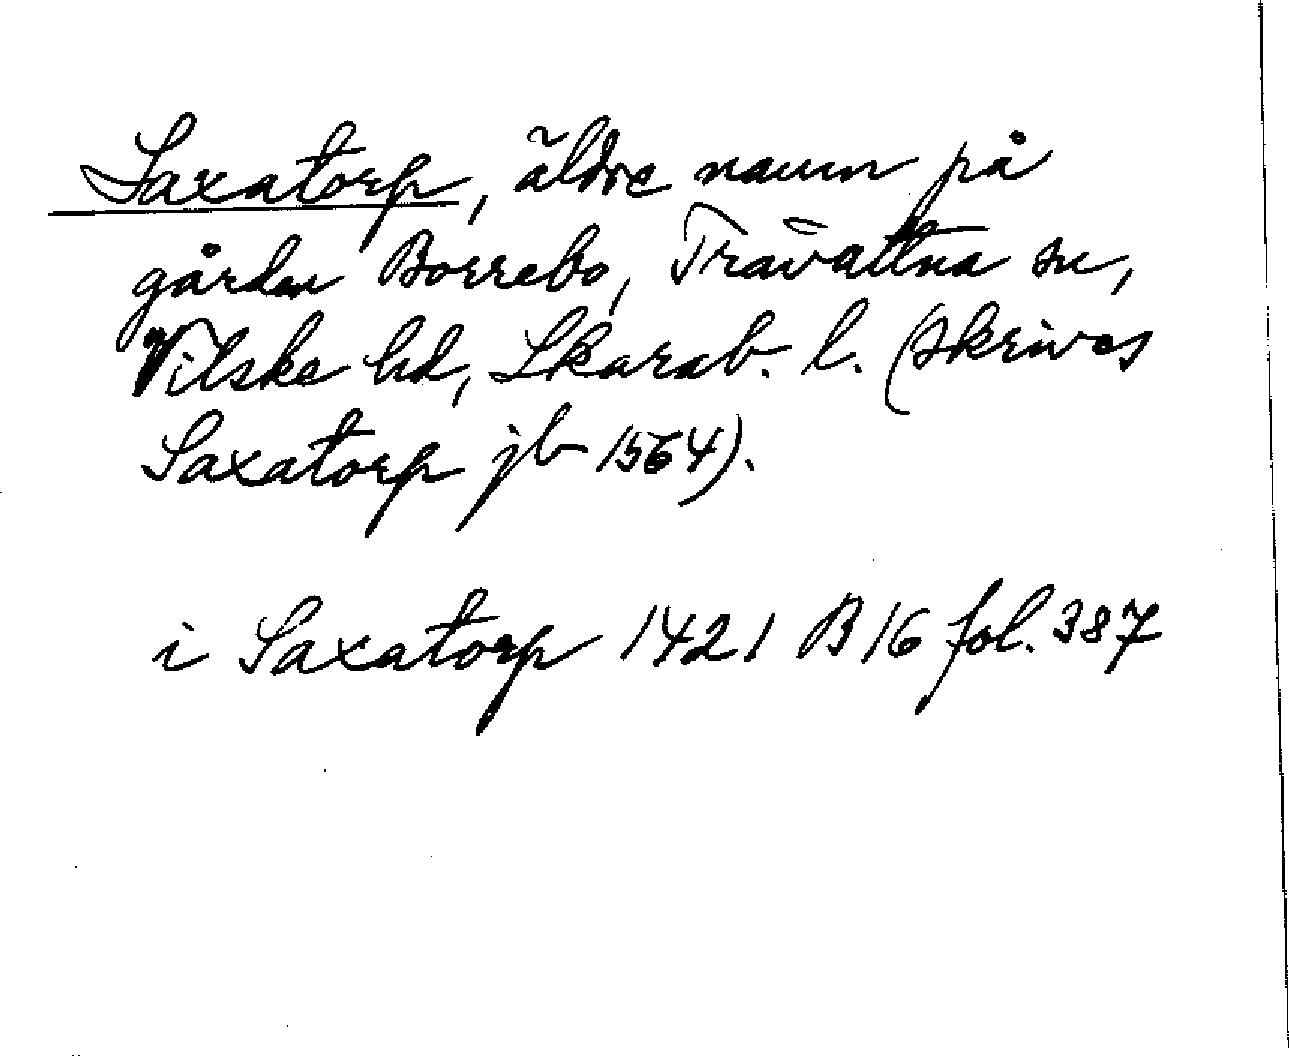 Saxatorp, äldre namn på
gården Borrebo, Trävattna sn,
Vilske hd, Skarab. l. (skrives
Saxatorp jb 1564).
i Saxatorp 1421 B 16 fol. 387